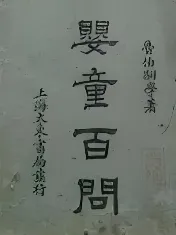 魯伯嗣學著
嬰童百問
上海大東書局發行